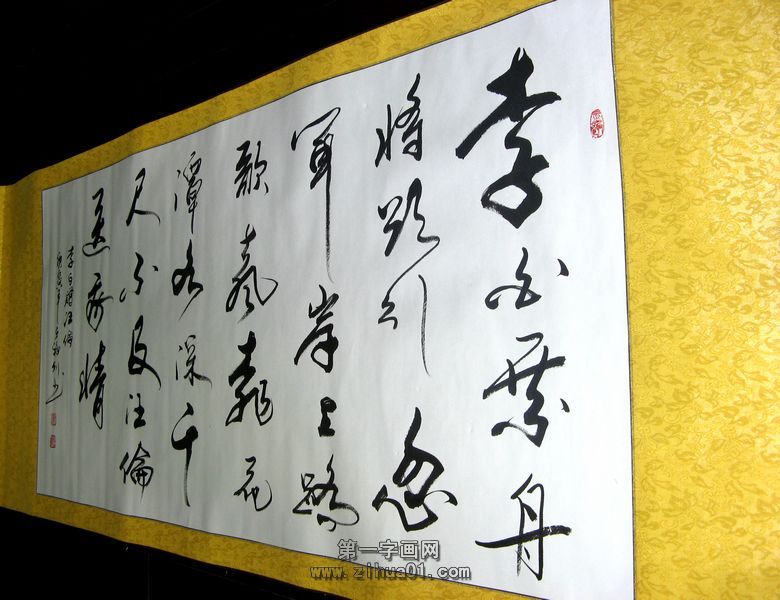 李白乘舟
將欲行忽
聞岸上踏
歌聲桃花
潭水深千
尺不及汪倫
送我情
李白贈汪倫
第一字画网
www.zihua01.com